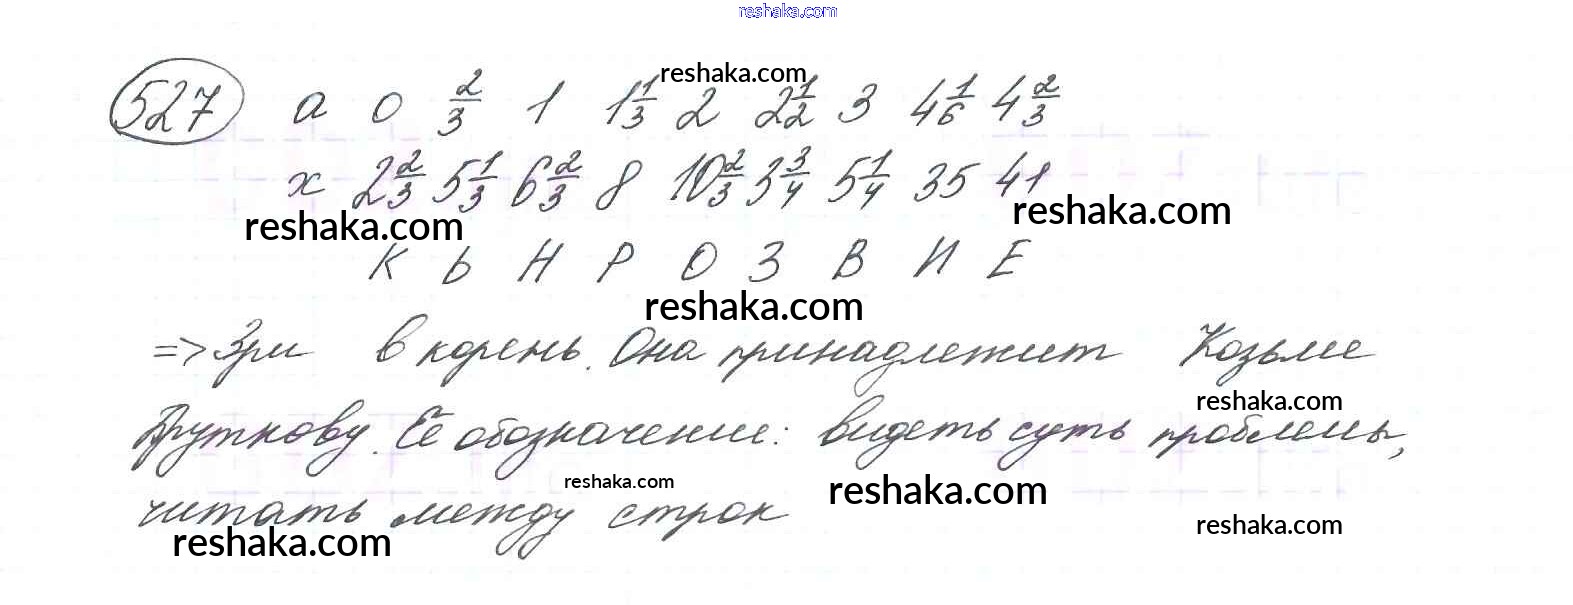 reshaka.com
527 а 0 2/3 1 1 1/3 2 2 1/2 3 4 1/6 4 2/3
reshaka.com
х 2 2/3 5 1/3 6 2/3 8 10 2/3 3 3/4 5 1/4 35 41
reshaka.com reshaka.com
К Ь Н Р О З В И Е
reshaka.com
=> Зри в корень. Она принадлежит Козьме
reshaka.com
Пруткову. Её обозначение: видеть суть проблемы,
reshaka.com reshaka.com
читать между строк
reshaka.com reshaka.com